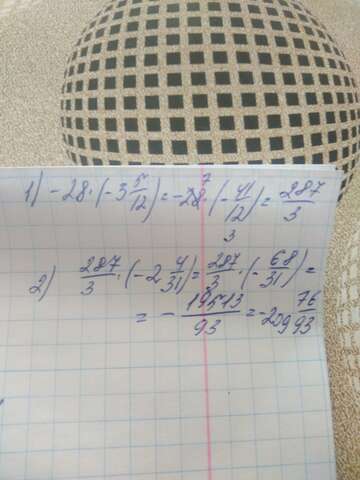 1) -28·(-3 5/12)=-28 7·(-41/12 3)=287/3
2) 287/3·(-2 4/31)=287/3·(-68/31)=
= -19513/93=-209 76/93